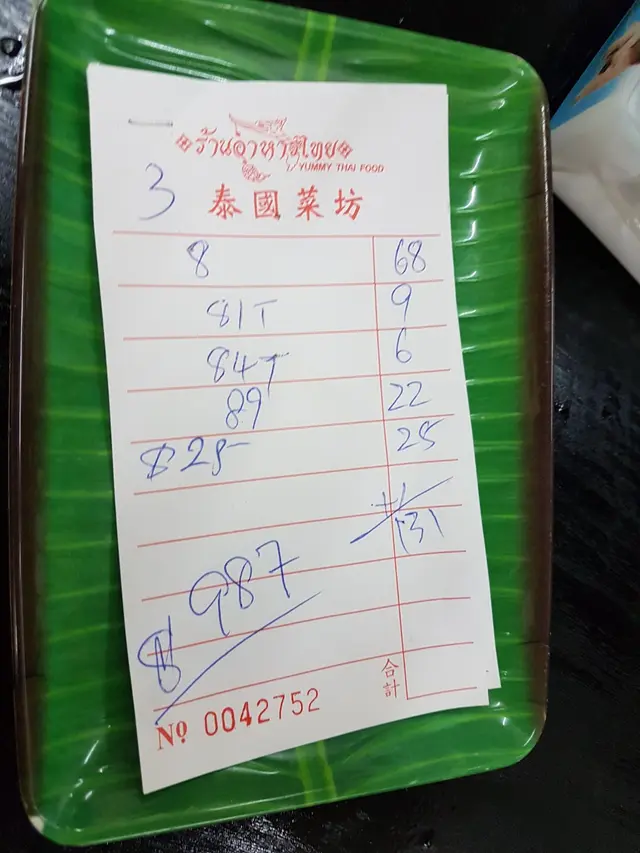 ร้านอาหารไทย
YUMMY THAI FOOD
3 泰國菜坊
8 68
81T 9
84T 6
89 22
$25- 25
共 131
$987
合計
No 0042752